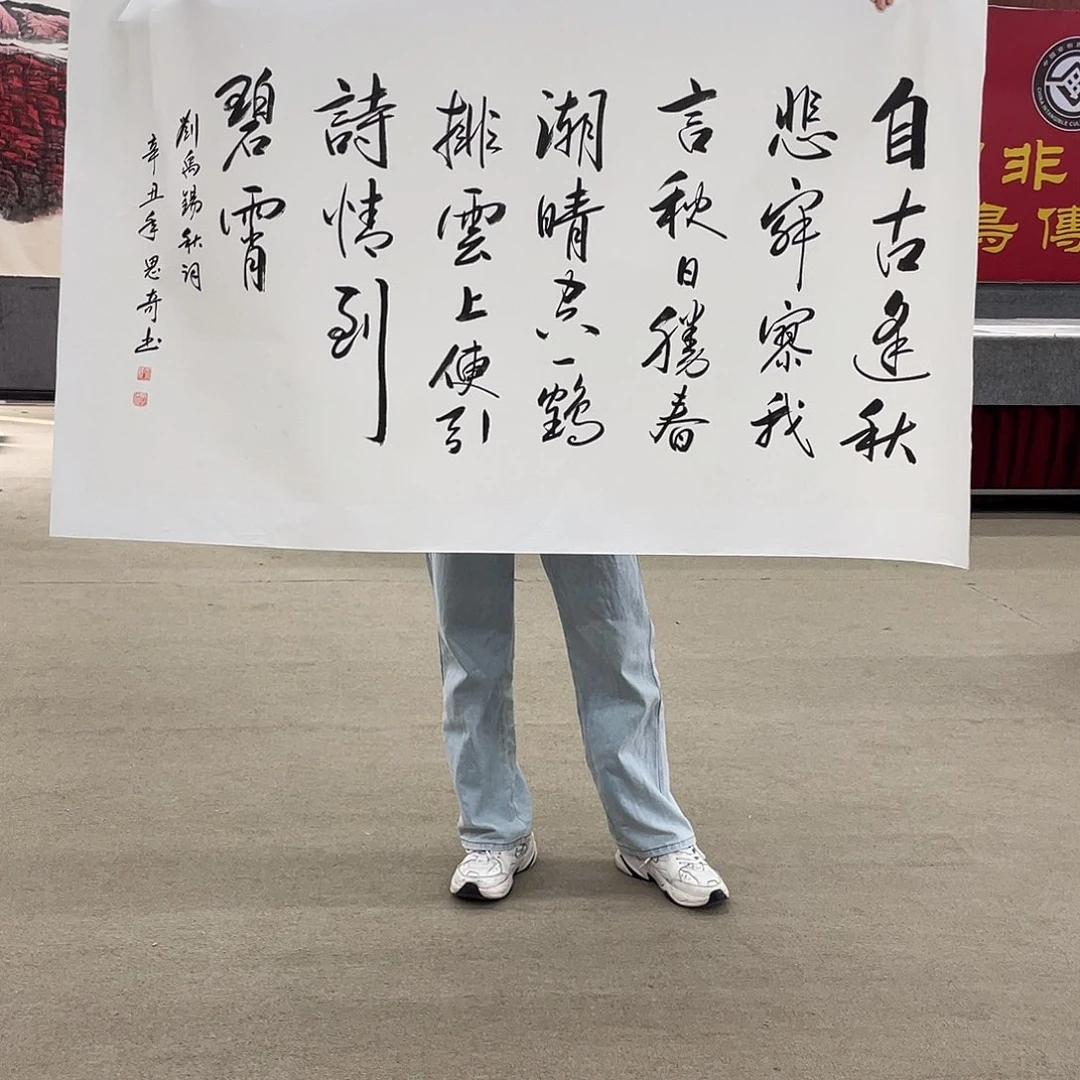 自古逢秋
悲寂寥我
言秋日勝春
潮晴空一鶴
排雲上便引
詩情到
碧霄
劉禹錫秋詞
辛丑年思奇书
非
傳
CHINA INTANGIBLE